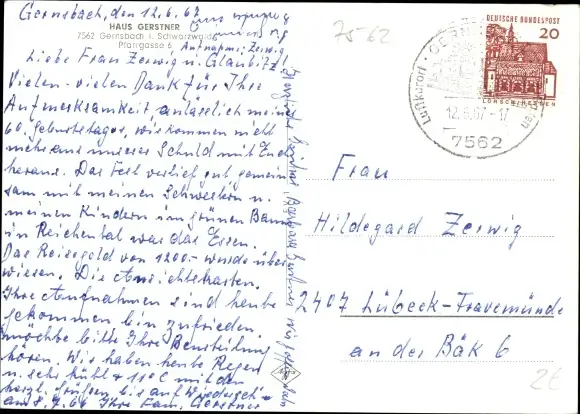 Gernsbach, den 12.6.67
HAUS GERSTNER
7562 Gernsbach i. Schwarzwald
Pfarrgasse 6
Aufnahm.: Zerwig
Liebe Frau Zerwig u. Glaubitz!
Vielen-vielen Dank für Ihre
Aufmerksamkeit, anläßlich meines
60. Geburtstages, wir kommen nicht
mehr aus unserer Schuld mit Euch
heraus. Das Fest verlief gut gemein
sam mit meinen Schwestern u.
meinen Kindern im grünen Baum
in Reichental war das Essen.
Das Reisegeld von 1200.- wurde über
wiesen. Die Ansichtskarten.
Ihre Aufnahmen sind heute
gekommen bin zufrieden
möchte bitte Ihre Beurteilung
hören. Wir haben heute Regen
u. sehr kühl + 11°C mit den
herzl. Grüßen bis auf Wiederseh'n
am 8.7.67 Ihre Fam. Gerstner
7562
DEUTSCHE BUNDESPOST
20
LORSCH/HESSEN
Luftkurort
12.6.67-17
7562
Frau
Hildegard Zerwig
2407 Lübeck-Travemünde
an der Bäk 6
Agfa
2€